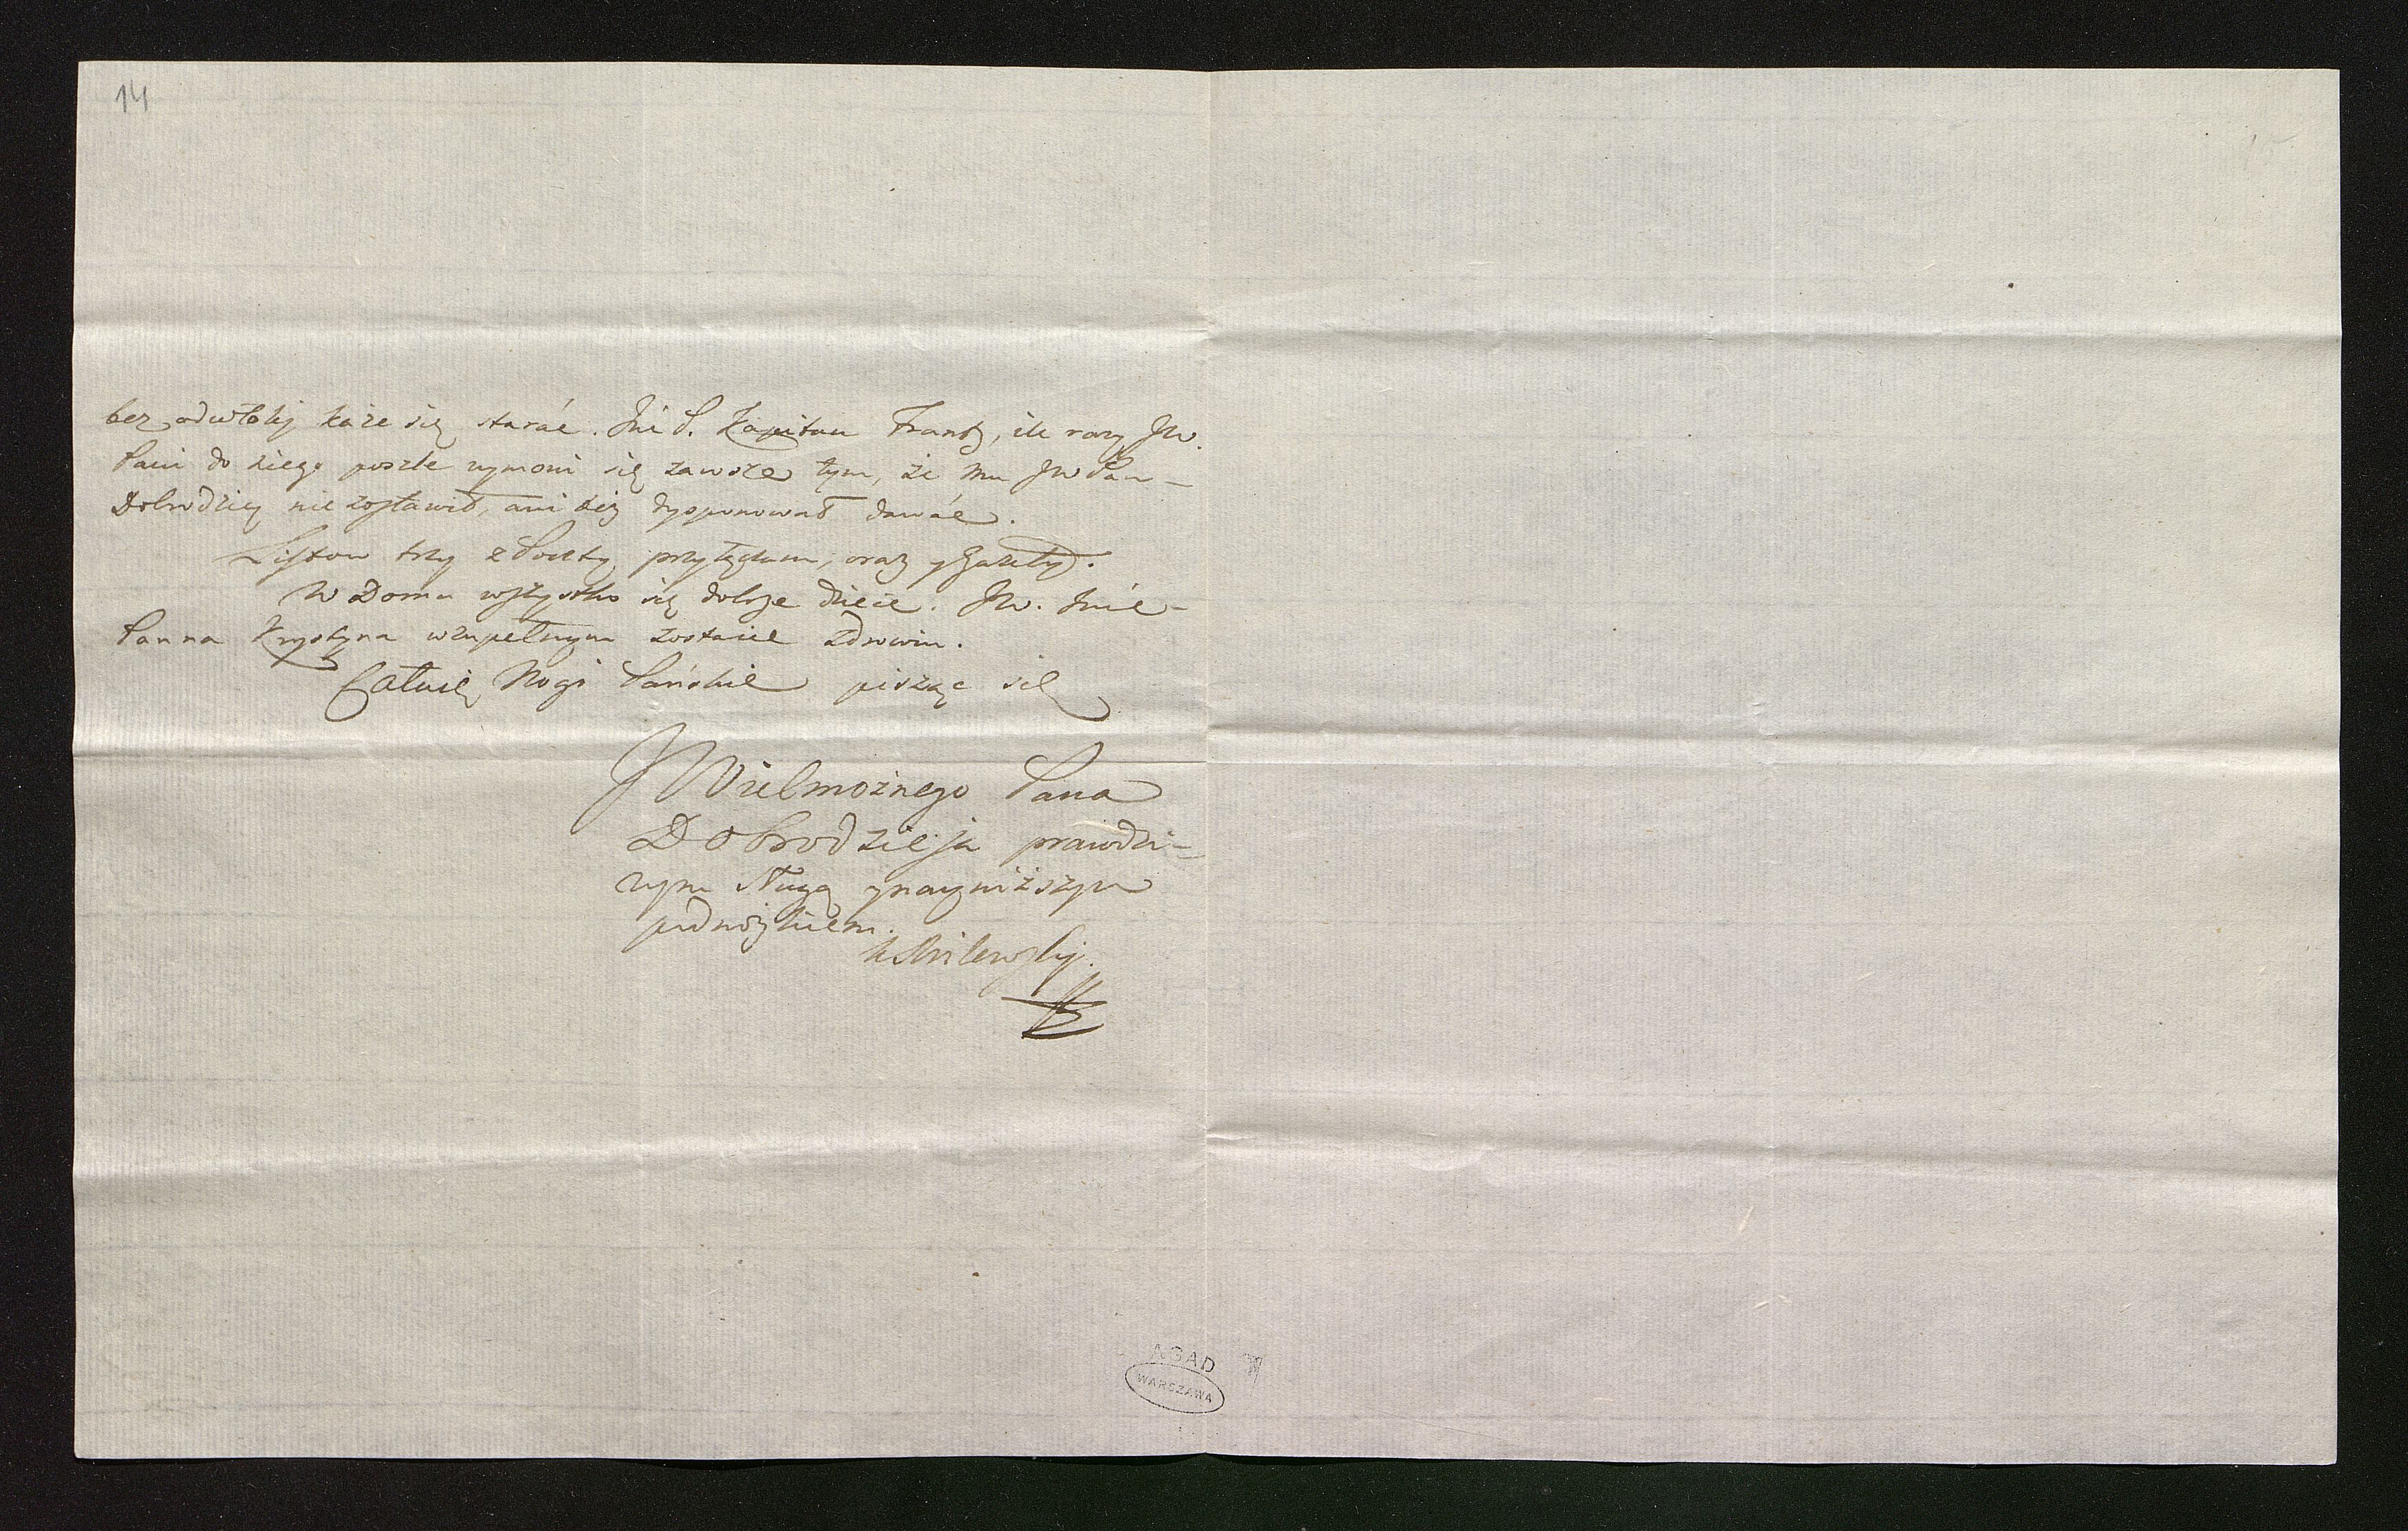 14
bez odwłoki każe się starać. Jmć P. Kapitan Frantz, ile razy JW.
Pani do niego poszle wymowi się zawsze tym, że mu JW Pan-
Dobrodziey nie zostawił, ani też dysponował dawać.
Listow trzy z Poczty przyłączam, oraz y Gazety.
W Domu wszystko się dobrze dzieie. JW. Jmć-
Panna Krystyna w zupełnym zostaie zdrowiu.
Całuię Nogi Pańskie pisząc się
JWielmożnego Pana
Dobrodzieja prawdzi-
wym sługą y nayniższym
podnożkiem.
Milewsky.
AGAD
WARSZAWA